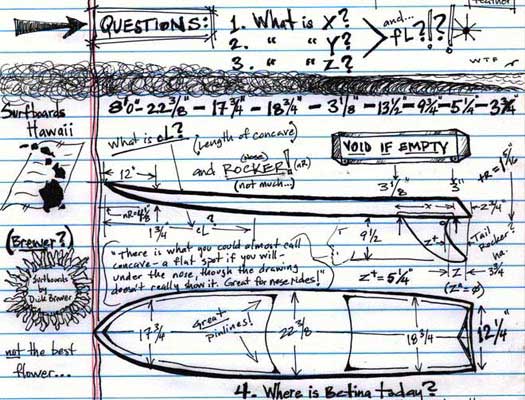 QUESTIONS:
1. What is X?
2. " " Y?
3. " " Z?
and...
fL?!?!!
feather
WTF
8'0" - 22 3/8" - 17 3/4" - 18 3/4" - 3 1/8" - 13 1/2" - 9 3/4" - 5 1/4" - 3 3/4"
Surfboards
Hawaii
What is cL?
(Length of concave)
and (Nose) ROCKER! (nR)
(not much...)
VOID IF EMPTY
12"
3 1/8"
3"
x
2 3/4"
nR=4 5/8
1 3/4
cL?
9 1/2
Z+
Z+ = 5 1/4"
Z
(Z^ = Ø)
3 3/4
Tail
Rocker?
ha.
"There is what you could almost call
concave - a flat spot if you will -
under the nose, though the drawing
doesn't really show it. Great for nose rides!"
(Brewer?)
Surfboards
by
Dick Brewer
not the best
flower...
17 3/4
Great
pinlines!
22 3/8
18 3/4
12 1/4"
4. Where is Betina today?